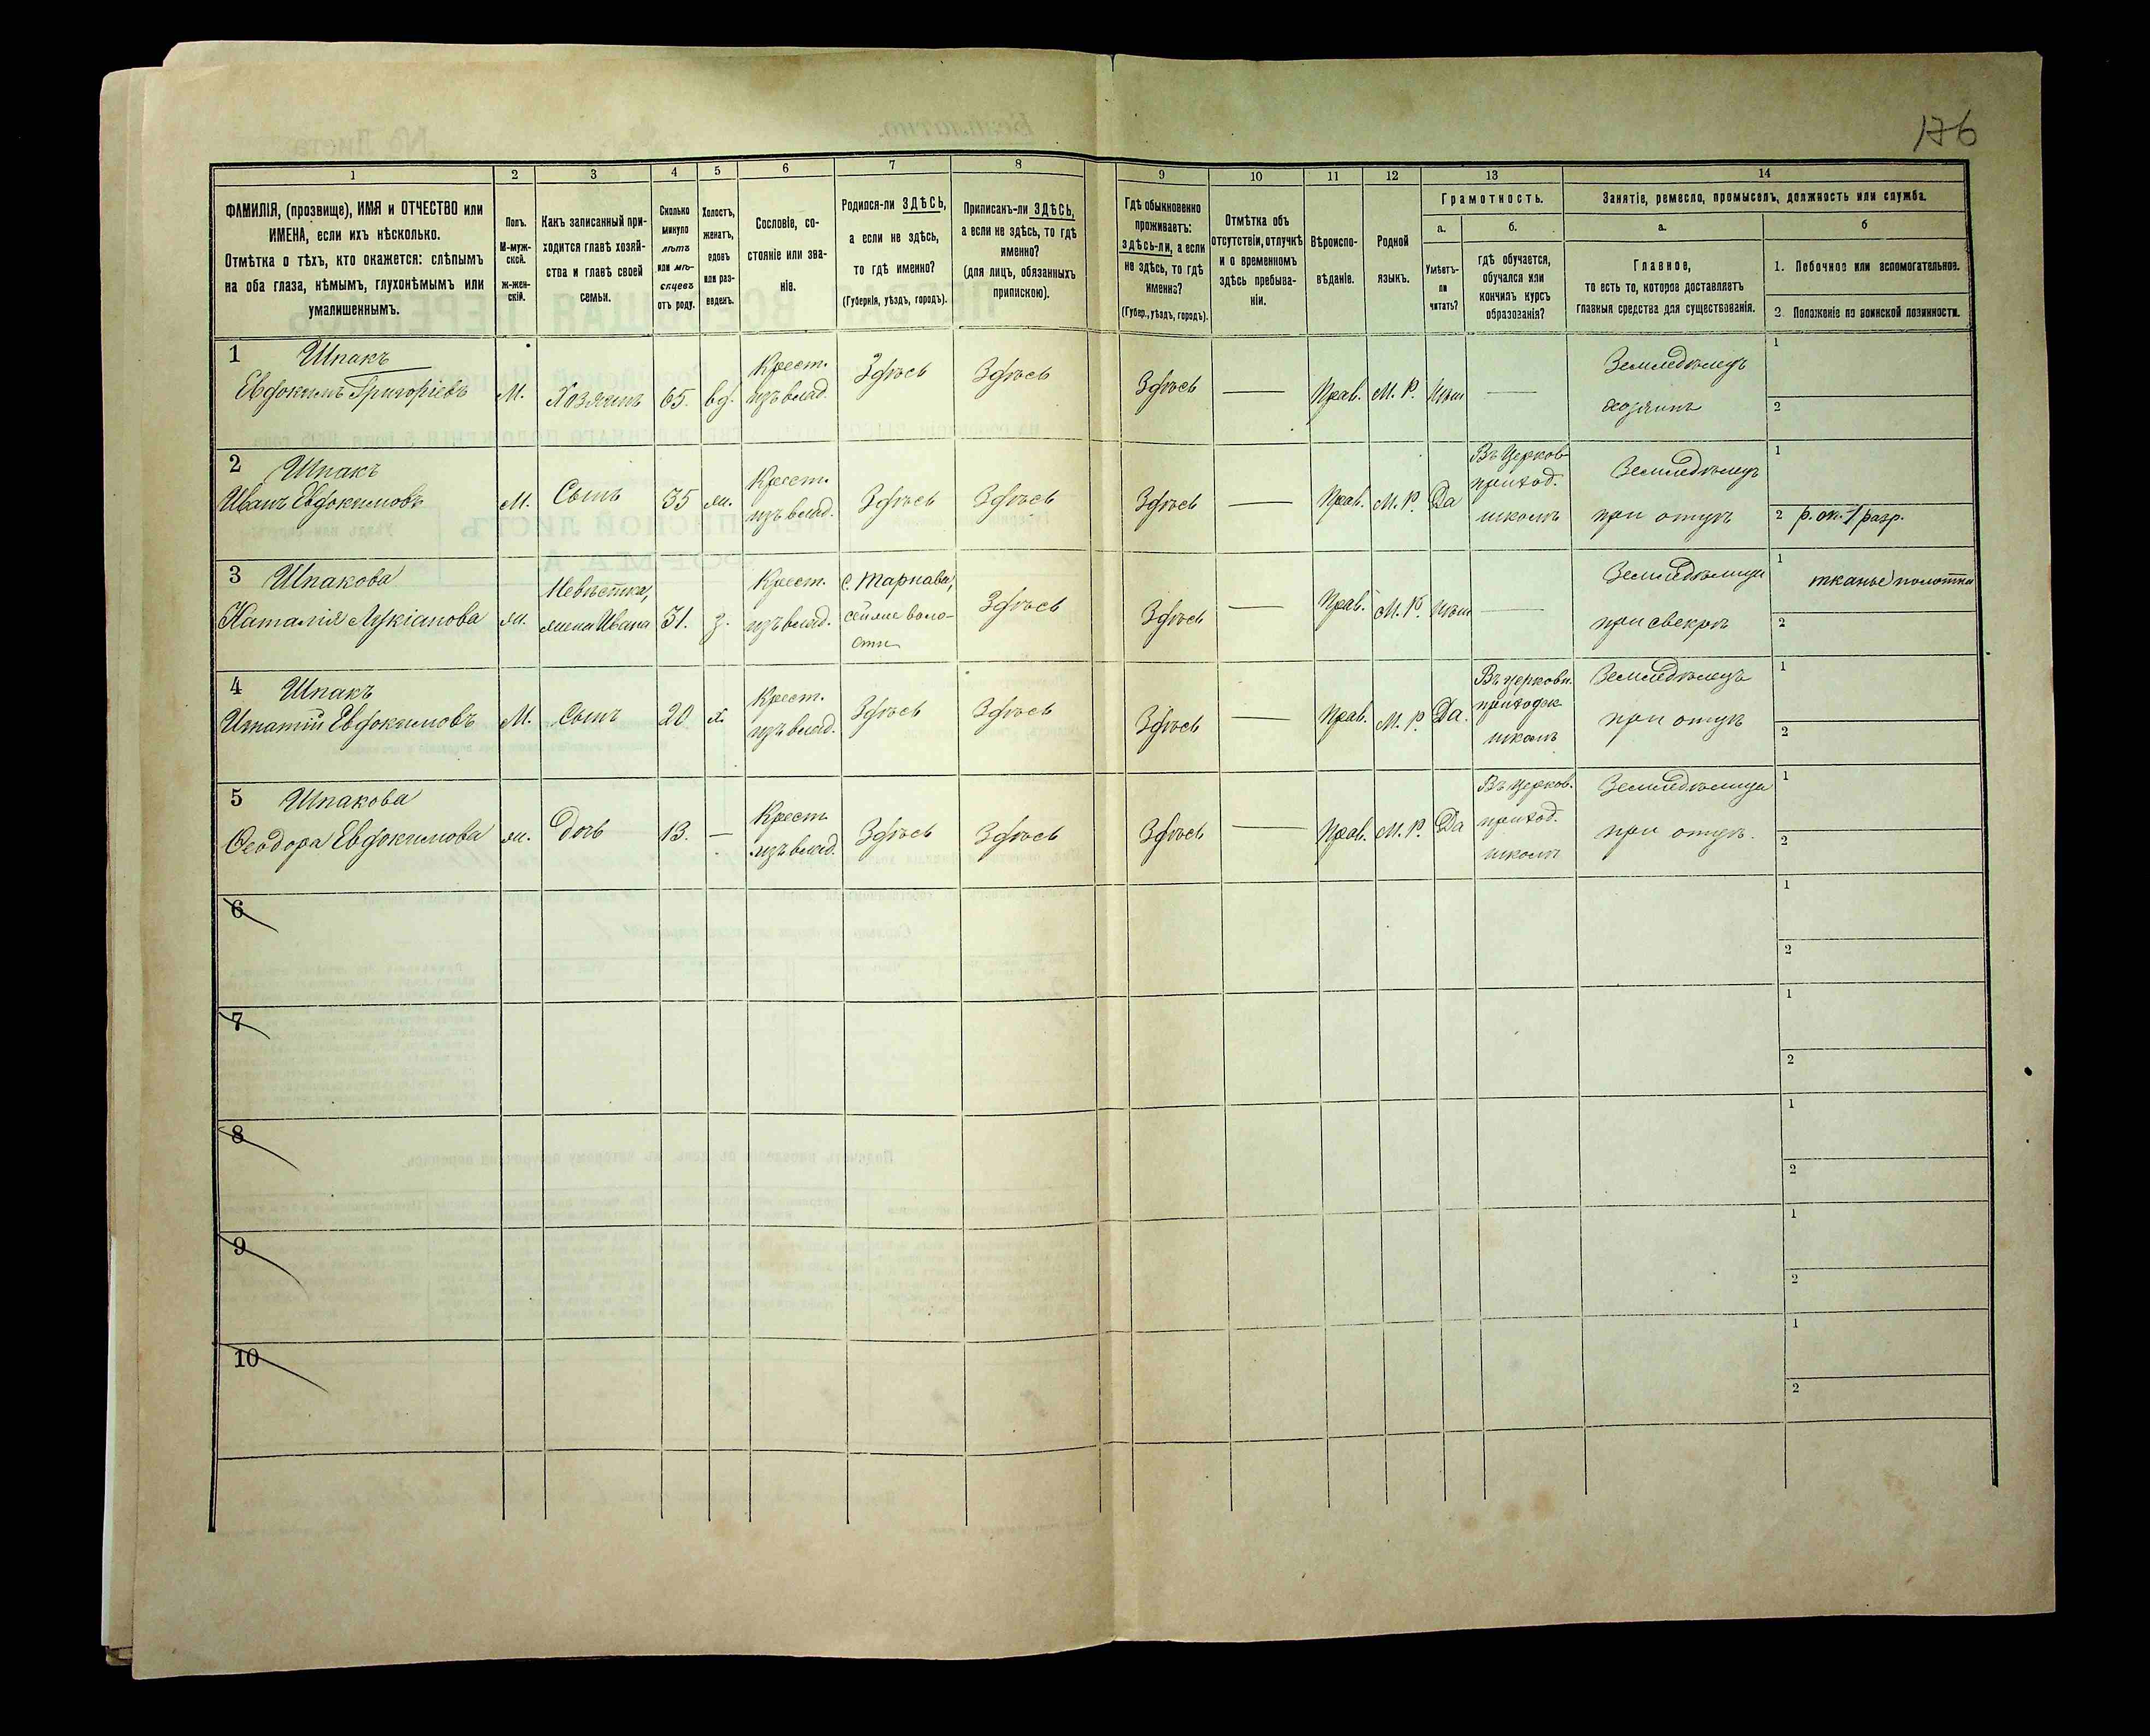 176
1 2 3 4 5 6 7 8 9 10 11 12 13 14
ФАМИЛІЯ, (прозвище), ИМЯ и ОТЧЕСТВО или
ИМЕНА, если ихъ нѣсколько.
Отмѣтка о тѣхъ, кто окажется: слѣпымъ
на оба глаза, нѣмымъ, глухонѣмымъ или
умалишеннымъ.
Полъ.
М-муж-
ской.
ж-жен-
скій.
Какъ записанный при-
ходится главѣ хозяй-
ства и главѣ своей
семьи.
Сколько
минуло
лѣтъ
или мѣ-
сяцевъ
отъ роду.
Холостъ,
женатъ,
вдовъ
или раз-
веденъ.
Сословіе, со-
стояніе или зва-
ніе.
Родился-ли ЗДѢСЬ,
а если не здѣсь,
то гдѣ именно?
(Губернія, уѣздъ, городъ).
Приписанъ-ли ЗДѢСЬ,
а если не здѣсь, то гдѣ
именно?
(для лицъ, обязанныхъ
припискою).
Гдѣ обыкновенно
проживаетъ:
здѣсь-ли, а если
не здѣсь, то гдѣ
именно?
(Губер., уѣздъ, городъ).
Отмѣтка объ
отсутствіи, отлучкѣ
и о временномъ
здѣсь пребыва-
ніи.
Вѣроиспо-
вѣданіе.
Родной
языкъ.
Грамотность.
а.
Умѣетъ-
ли
читать?
б.
гдѣ обучается,
обучался или
кончилъ курсъ
образованія?
Занятіе, ремесло, промыселъ, должность или служба.
а.
Главное,
то есть то, которое доставляетъ
главныя средства для существованія.
б
1. Побочное или вспомогательное.
2 Положеніе по воинской повинности.
1 Шпакъ
Евдокимъ Григоріевъ М. Хозяинъ 65. вд. Крест. изъ влад. Здѣсь Здѣсь Здѣсь — Прав. М. Р. Нѣт — Земледѣлецъ хозяинъ 1 2
2 Шпакъ
Иванъ Евдокимовъ М. Сынъ 35 ж. Крест. изъ влад. Здѣсь Здѣсь Здѣсь — Прав. М. Р. Да Въ Церков- приход. школѣ Земледѣлецъ при отцѣ 1 2 р. оп. 1 разр.
3 Шпакова
Наталія Лукіанова ж. Невѣстка, жена Ивана 31. з. Крест. изъ влад. С. Тарнава, сей же воло- сти Здѣсь Здѣсь — Прав. М. Р. Нѣт — Земледѣлица при свекрѣ 1 тканье полотна 2
4 Шпакъ
Игнатій Евдокимовъ М. Сынъ 20 х. Крест. изъ влад. Здѣсь Здѣсь Здѣсь — Прав. М. Р. Да. Въ церковн. приходск. школѣ Земледѣлецъ при отцѣ 1 2
5 Шпакова
Ѳеодора Евдокимова ж. Дочь 13. — Крест. изъ влад. Здѣсь Здѣсь Здѣсь — Прав. М. Р. Да Въ Церков. приход. школѣ Земледѣлица при отцѣ. 1 2
6 1 2
7 1 2
8 1 2
9 1 2
10 1 2